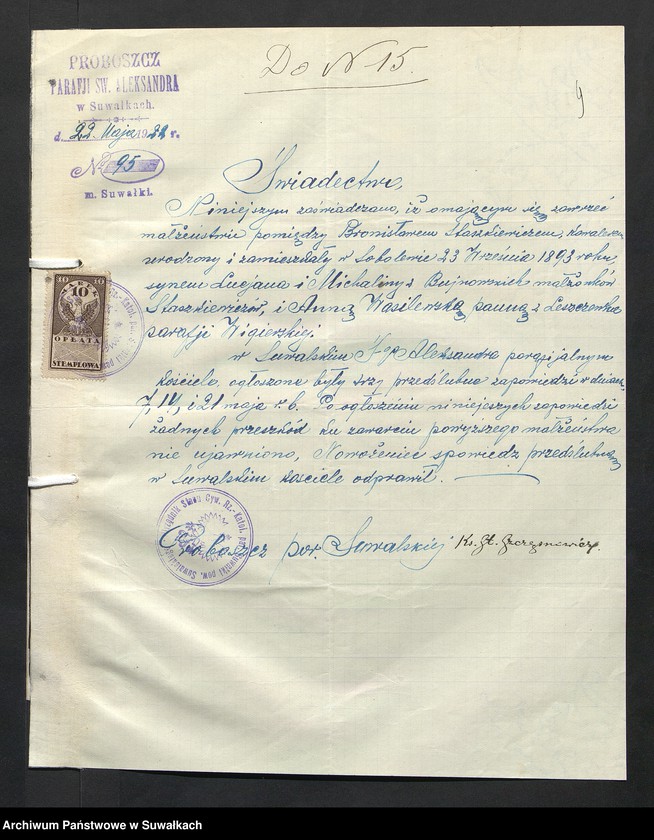 PROBOSZCZ
PARAFJI ŚW. ALEKSANDRA
w Suwałkach.
d. 22 Maja 1922 r.
№ 95
m. Suwałki.
Do N 15.
Świadectwo,
Niniejszym zaświadczano, iż o mającym się zawrzeć
małżeństwie pomiędzy Bronisławem Staszkiewiczem, kawalerem
urodzony i zamieszkały w Sobolewie 23 Września 1893 roku,
synem Lucjana i Michaliny z Bujnowskich małżonków
Staszkiewiczów, i Anną Wasilewską, panną z Leszczewka
parafji Wigierskiej
w Suwalskim Aleksandra parafijalnym
kościele, ogłoszone były trzy przedślubne zapowiedzi w dniach
7, 14, i 21 maja r. b. Po ogłoszeniu niniejszych zapowiedzi
żadnych przeszkód ku zawarciu powyższego małżeństwa
nie ujawniono, Nowożeniec spowiedź przedślubną
w Suwalskim kościele odprawił.
Proboszcz par. Suwalskiej Ks. St.
10 10
OPŁATA
STEMPLOWA
Archiwum Państwowe w Suwałkach